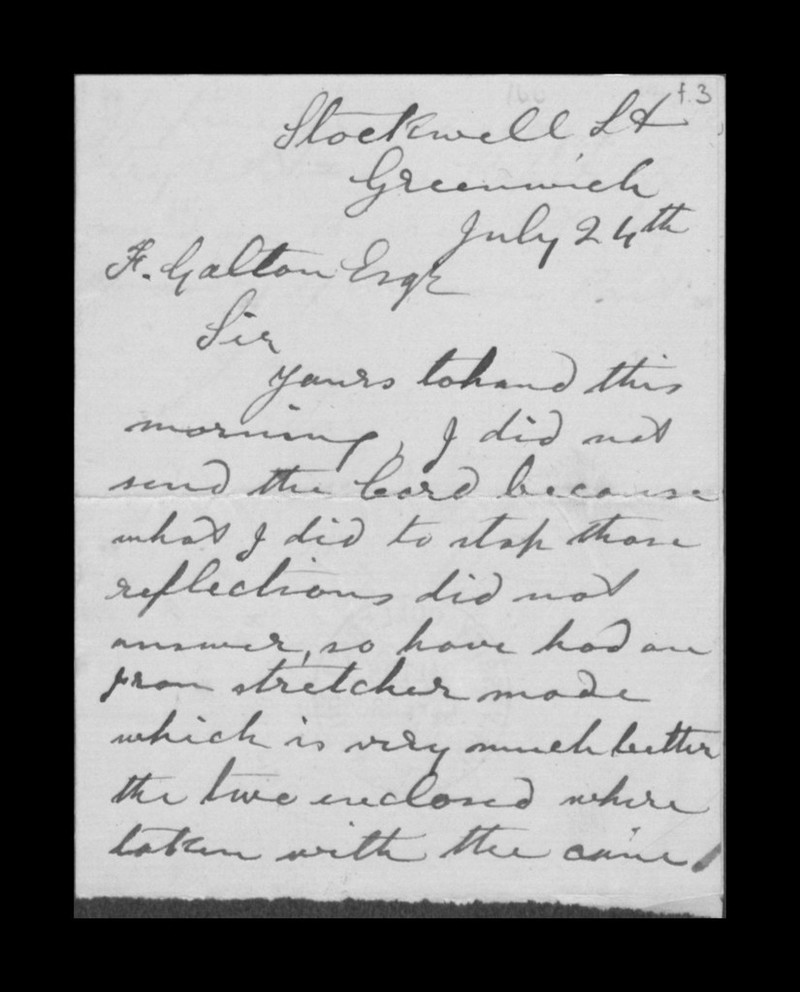 f.3
Stockwell St
Greenwich
July 24th
F. Galton Esqr
Sir
Yours to hand this
morning, I did not
send the Card because
what I did to stop those
reflections did not
answer, so have had an
Iron stretcher made
which is very much better
the two enclosed where
taken with the